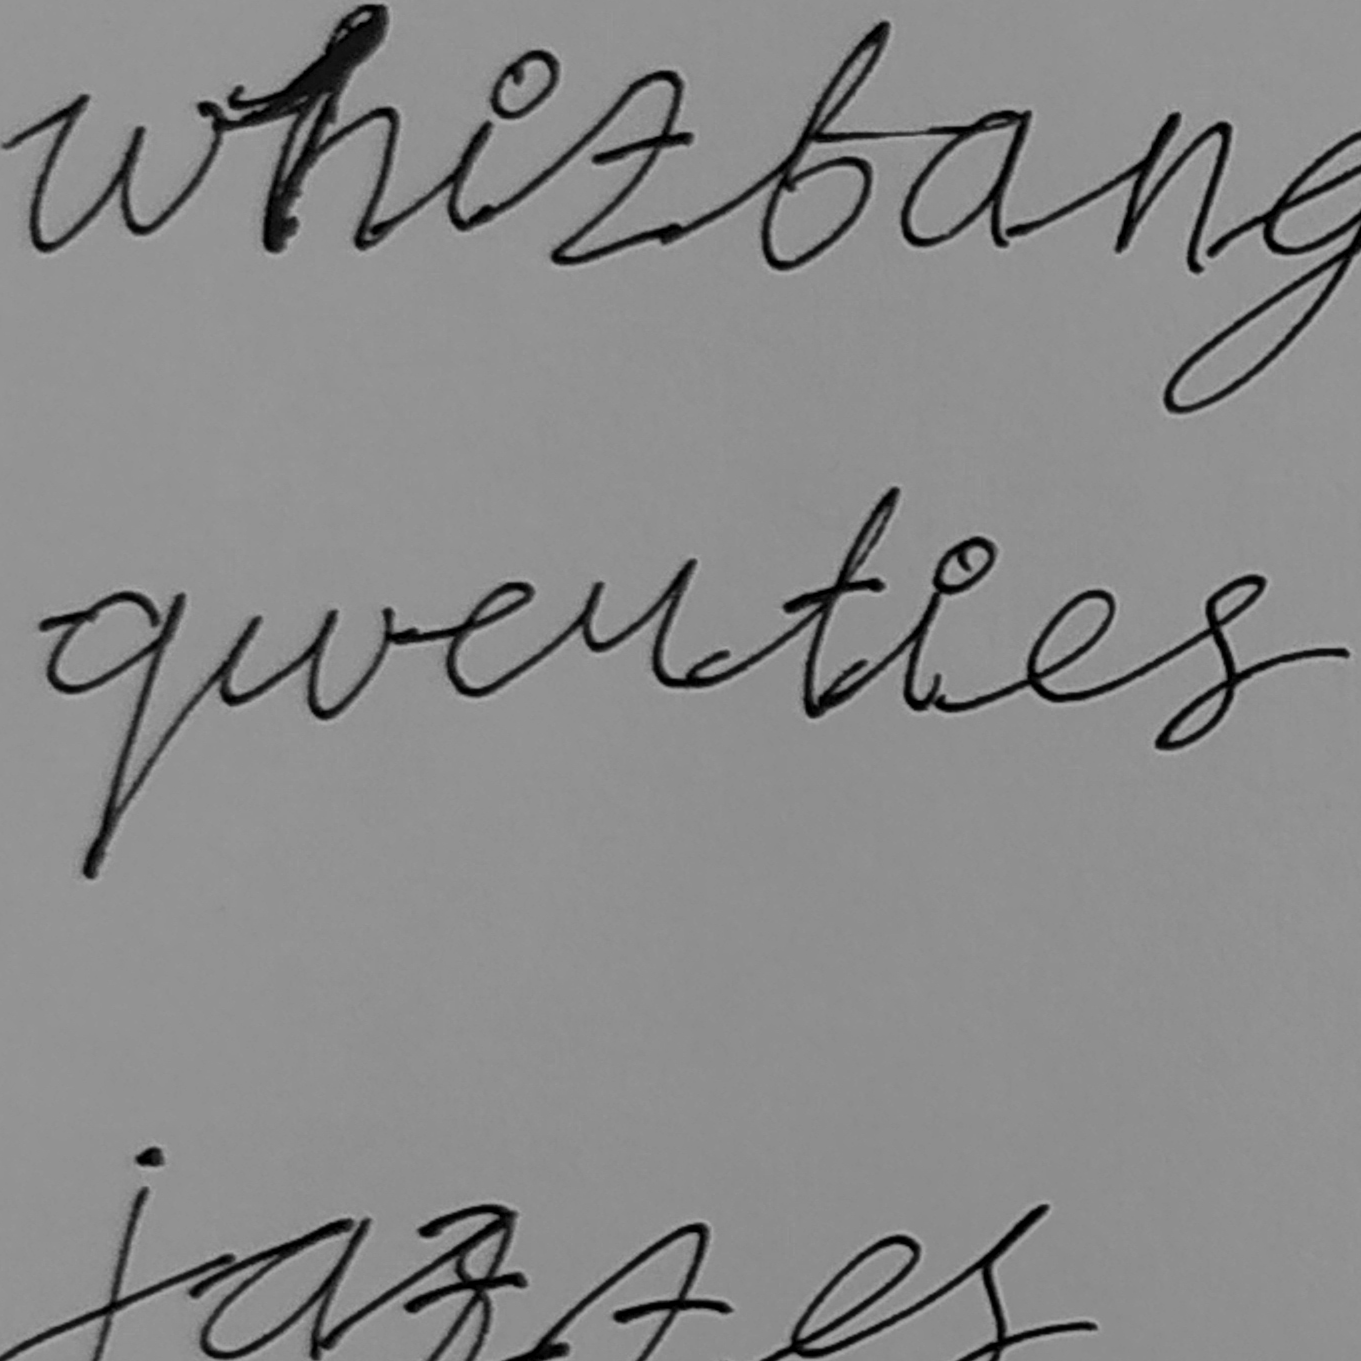 whizbang
qwerties
jazzes